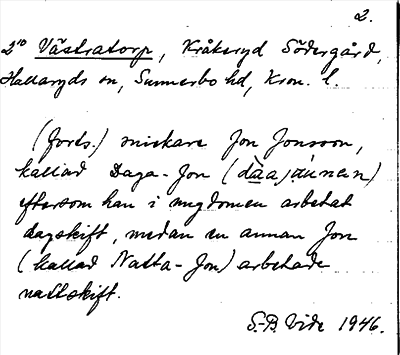 2.
2ⁿᵒ Västratorp, Kråkeryd Södergård,
Hallaryds sn, Sunnerbo hd, Kron. l.
(forts.) snickare Jon Jonsson,
kallad Daga-Jon (
eftersom han i ungdomen arbetat
dagskift, medan en annan Jon
(kallad Natta-Jon) arbetade
nattskift.
S.-B. Vide 1946.